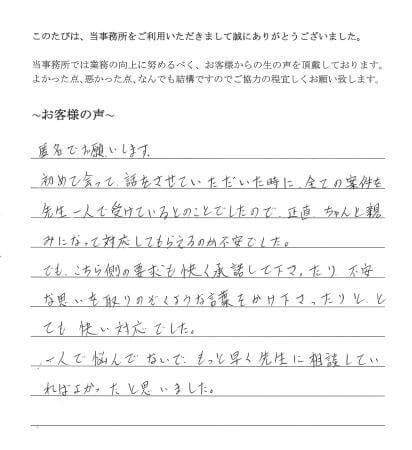 このたびは、当事務所をご利用いただきまして誠にありがとうございました。
当事務所では業務の向上に努めるべく、お客様からの生の声を頂戴しております。
よかった点、悪かった点、なんでも結構ですのでご協力の程宜しくお願い致します。
~お客様の声~
匿名でお願いします。
初めて会って、話をさせていただいた時に、全ての案件を
先生一人で受けているとのことでしたので、正直、ちゃんと親
身になって対応してもらえるのか不安でした。
でも、こちら側の要求も快く承諾して下さったり、不安
な思いも取りのぞくような言葉をかけ下さったりと、と
ても快い対応でした。
一人で悩んでないで、もっと早く先生に相談してい
ればよかったと思いました。